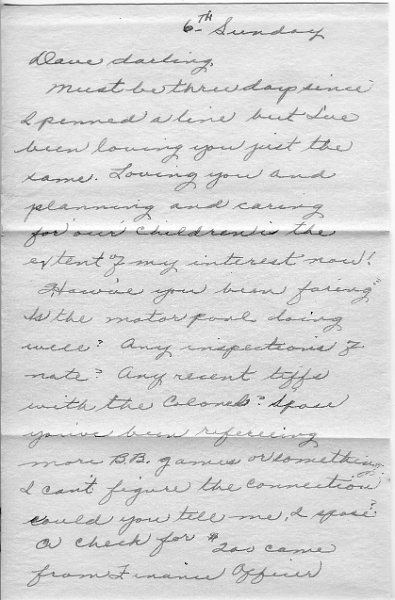 6th Sunday
Dave darling,
Must be three days since
I penned a line but I've
been loving you just the
same. Loving you and
planning and caring
for our children is the
extent of my interest now!
How've you been faring?
Is the motor pool doing
well? Any inspections of
note? Any recent tiffs
with the Colonels? Spose
you've been refereeing
more B.B. games or something.
I can't figure the connection
could you tell me, I spose?
A check for $200 came
from Finance Officer